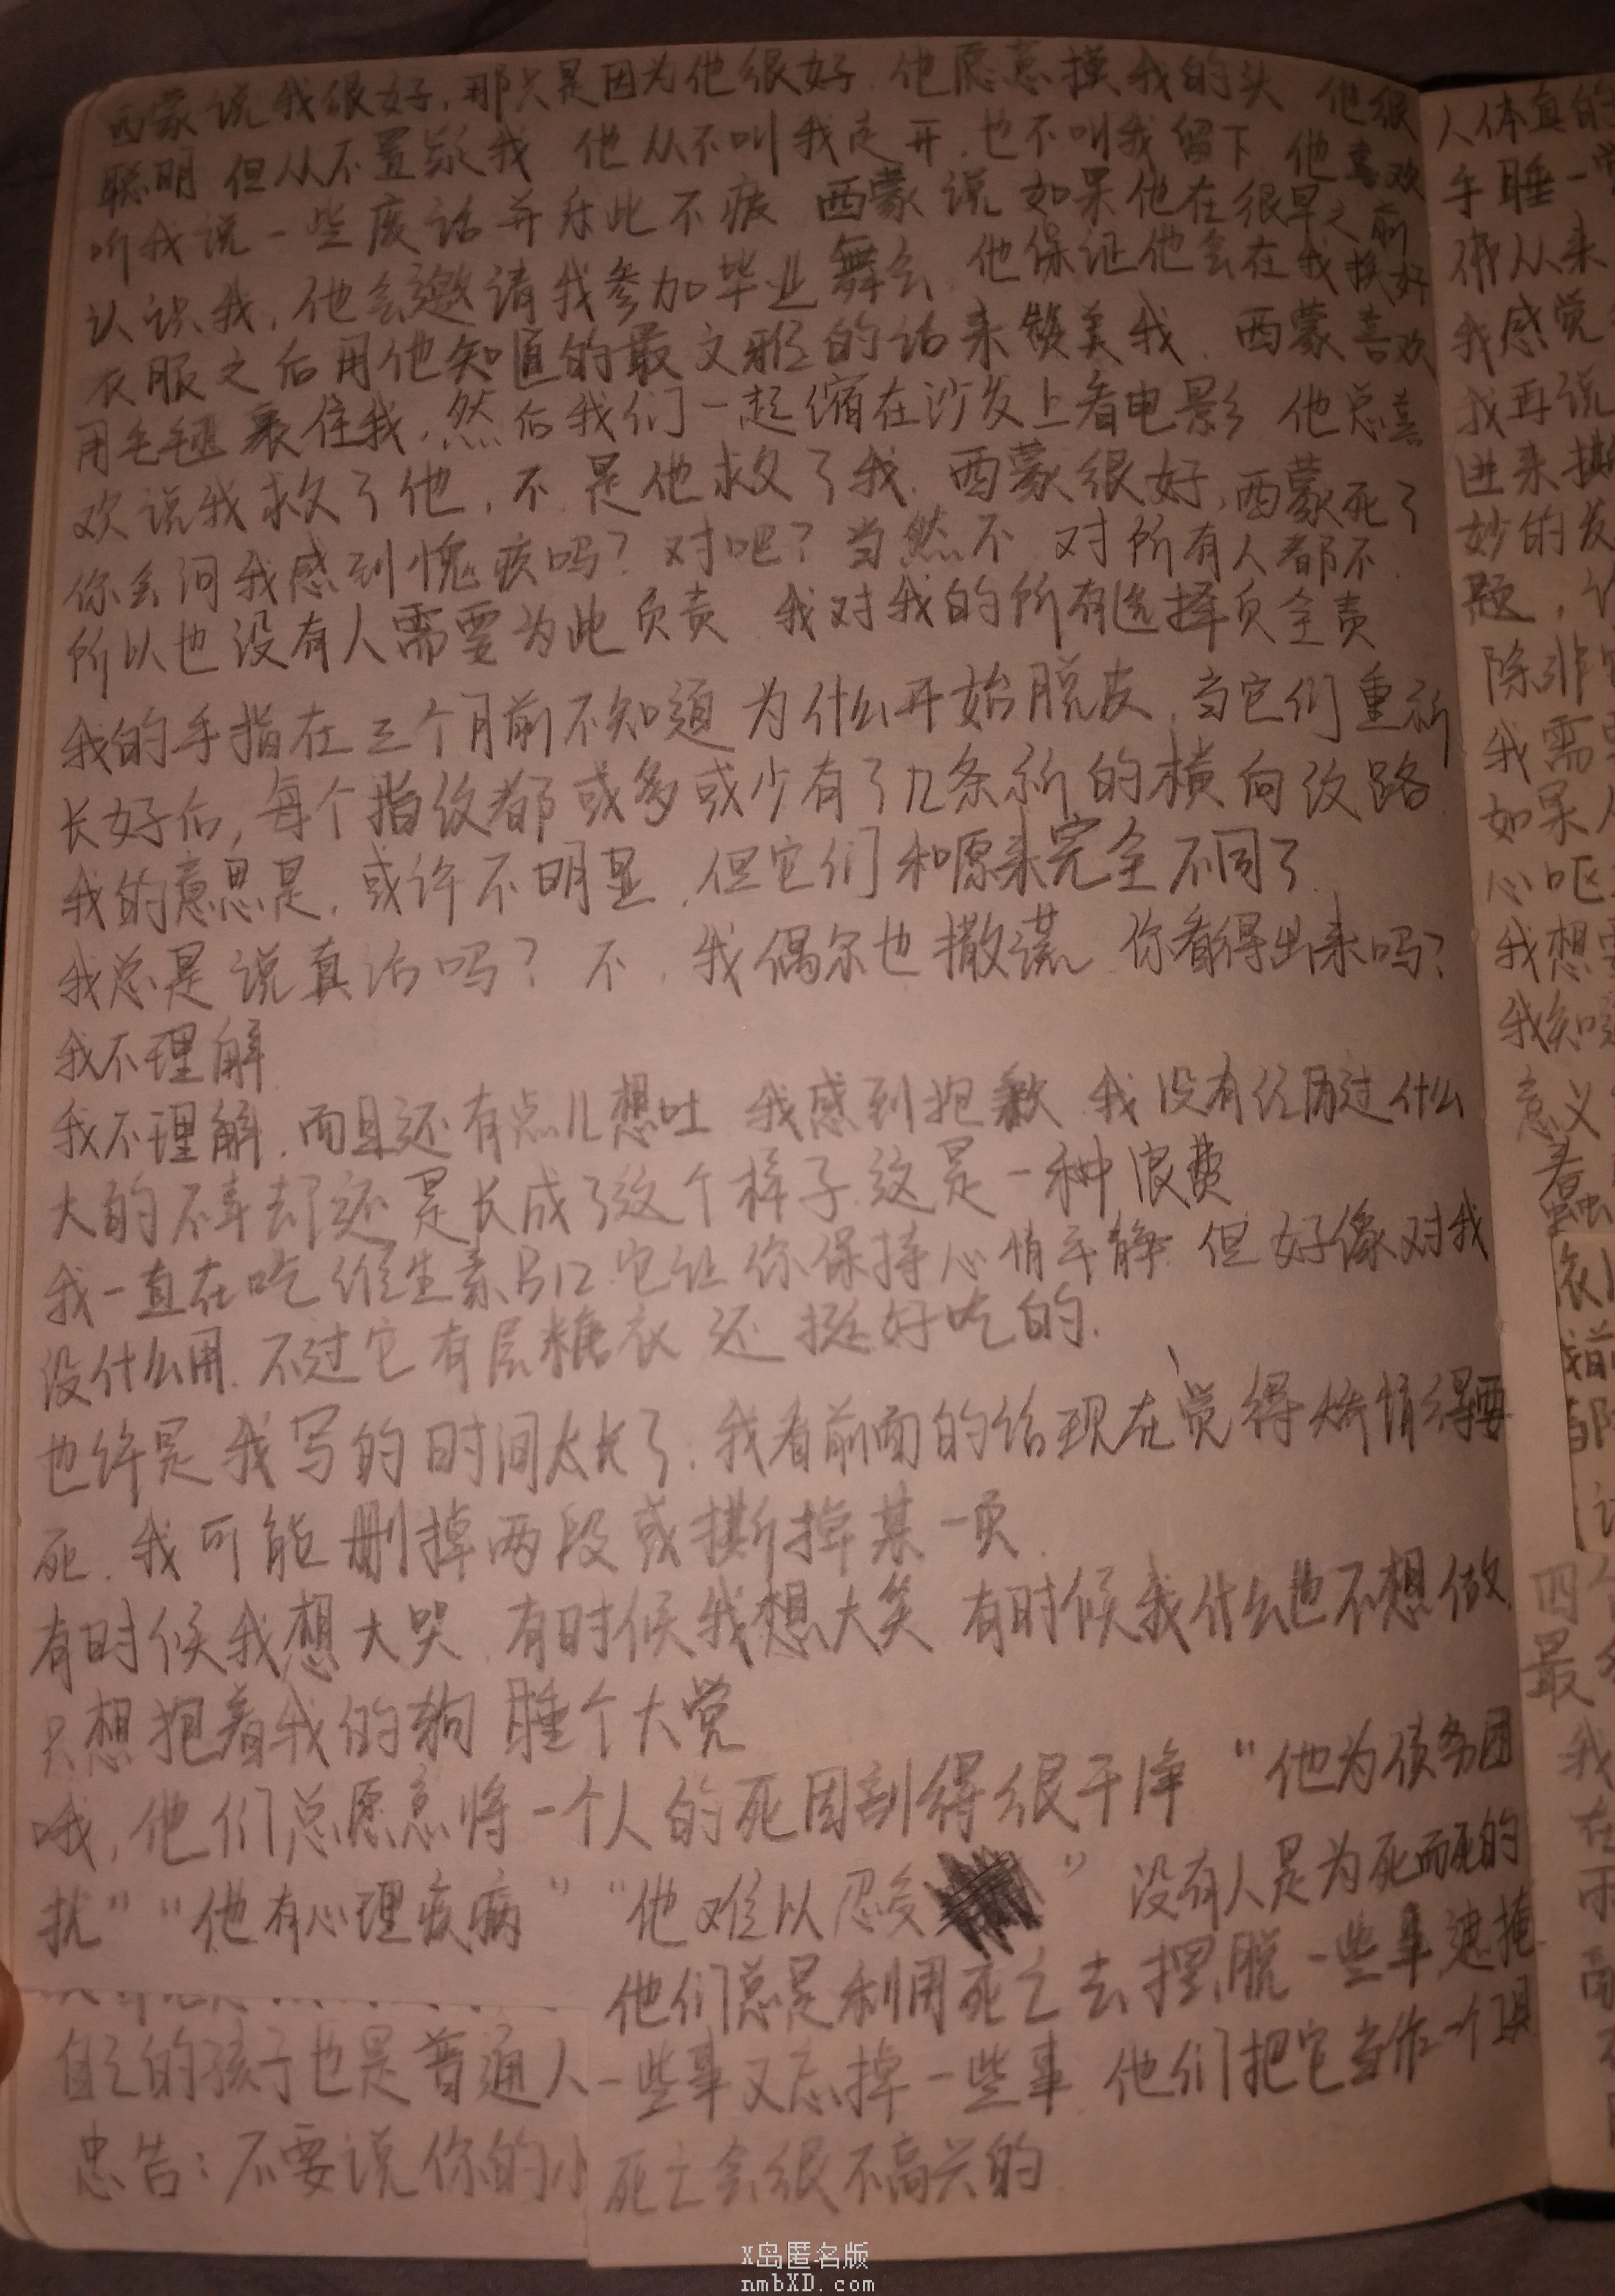 西蒙说我很好,那只是因为他很好.他愿意摸我的头 他很
聪明 但从不置疑我 他从不叫我走开.也不叫我留下 他喜欢
听我说一些废话并乐此不疲 西蒙说如果他在很早之前
认识我,他会邀请我参加毕业舞会 他保证他会在我换好
衣服之后用他知道的最文雅的话来赞美我.西蒙喜欢
用毛毯裹住我,然后我们一起缩在沙发上看电影 他总喜
欢说我救了他,不是他救了我.西蒙很好,西蒙死了
你会问我感到愧疚吗?对吧?当然不 对所有人都不.
所以也没有人需要为此负责.我对我的所有选择负全责
我的手指在三个月前不知道为什么开始脱皮,当它们重新
长好后,每个指纹都或多或少有了几条新的横向纹路.
我的意思是,或许不明显,但它们和原来完全不同了.
我总是说真话吗?不,我偶尔也撒谎.你看得出来吗?
我不理解.
我不理解.而且还有点儿想吐 我感到抱歉.我没有经历过什么
大的不幸却还是长成了这个样子.这是一种浪费
我一直在吃维生素B12.它让你保持心情平静.但好像对我
没什么用.不过它有层糖衣 还挺好吃的.
也许是我写的时间太长了.我看前面的话现在觉得矫情得要
死.我可能删掉两段或撕掉某一页.
有时候我想大哭.有时候我想大笑 有时候我什么也不想做.
只想抱着我的狗 睡个大觉
哦,他们总愿意将一个人的死因刮得很干净 "他为债务困
扰" "他有心理疾病" "他难以忍受 " 没有人是为死而死的
他们总是利用死亡去摆脱一些事 遮掩
一些事又忘掉一些事.他们把它当作一个
死亡会很不高兴的.
自己的孩子也是普通人
忠告:不要说你的小
人体真的
手睡一觉
从来
我感觉
我再说
进来
妙的发
题,
除非
我需要
如果
心呕
我想要
我知道
意义
蠢
四
最
我
在
X岛匿名版
nmbXD.com